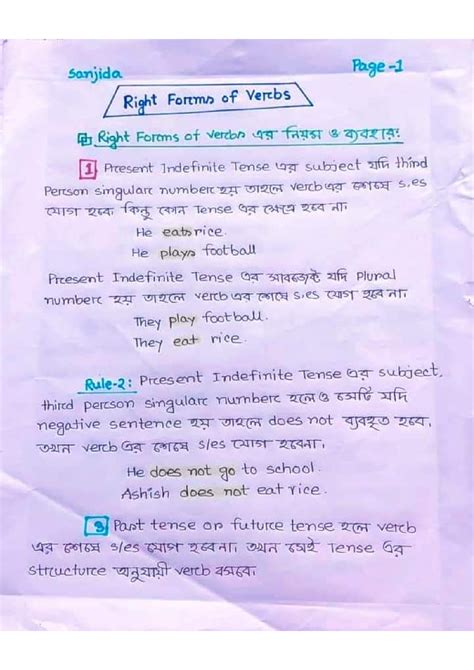 Sanjida
Page-1
Right Forms of Verbs
Right Forms of verbs এর নিয়ম ও ব্যবহার:
1. Present Indefinite Tense এর subject যদি third
Person singular number হয় তাহলে verb এর শেষে s,es
যোগ হবে। কিন্তু কোন Tense এর ক্ষেত্রে হবে না।
He eats rice.
He plays football
Present Indefinite Tense এর সাবজেক্ট যদি Plural
number হয় তাহলে verb এর শেষে s,es যোগ হবে না।
They play football.
They eat rice.
Rule-2: Present Indefinite Tense এর subject,
third person singular number হলেও সেটি যদি
negative sentence হয় তাহলে does not ব্যবহৃত হবে,
তখন verb এর শেষে s/es যোগ হবেনা।
He does not go to school.
Ashish does not eat rice.
3 Past tense or future tense হলে verb
এর শেষে s/es যোগ হবেনা। তখন সেই Tense এর
structure অনুযায়ী verb বসবে।